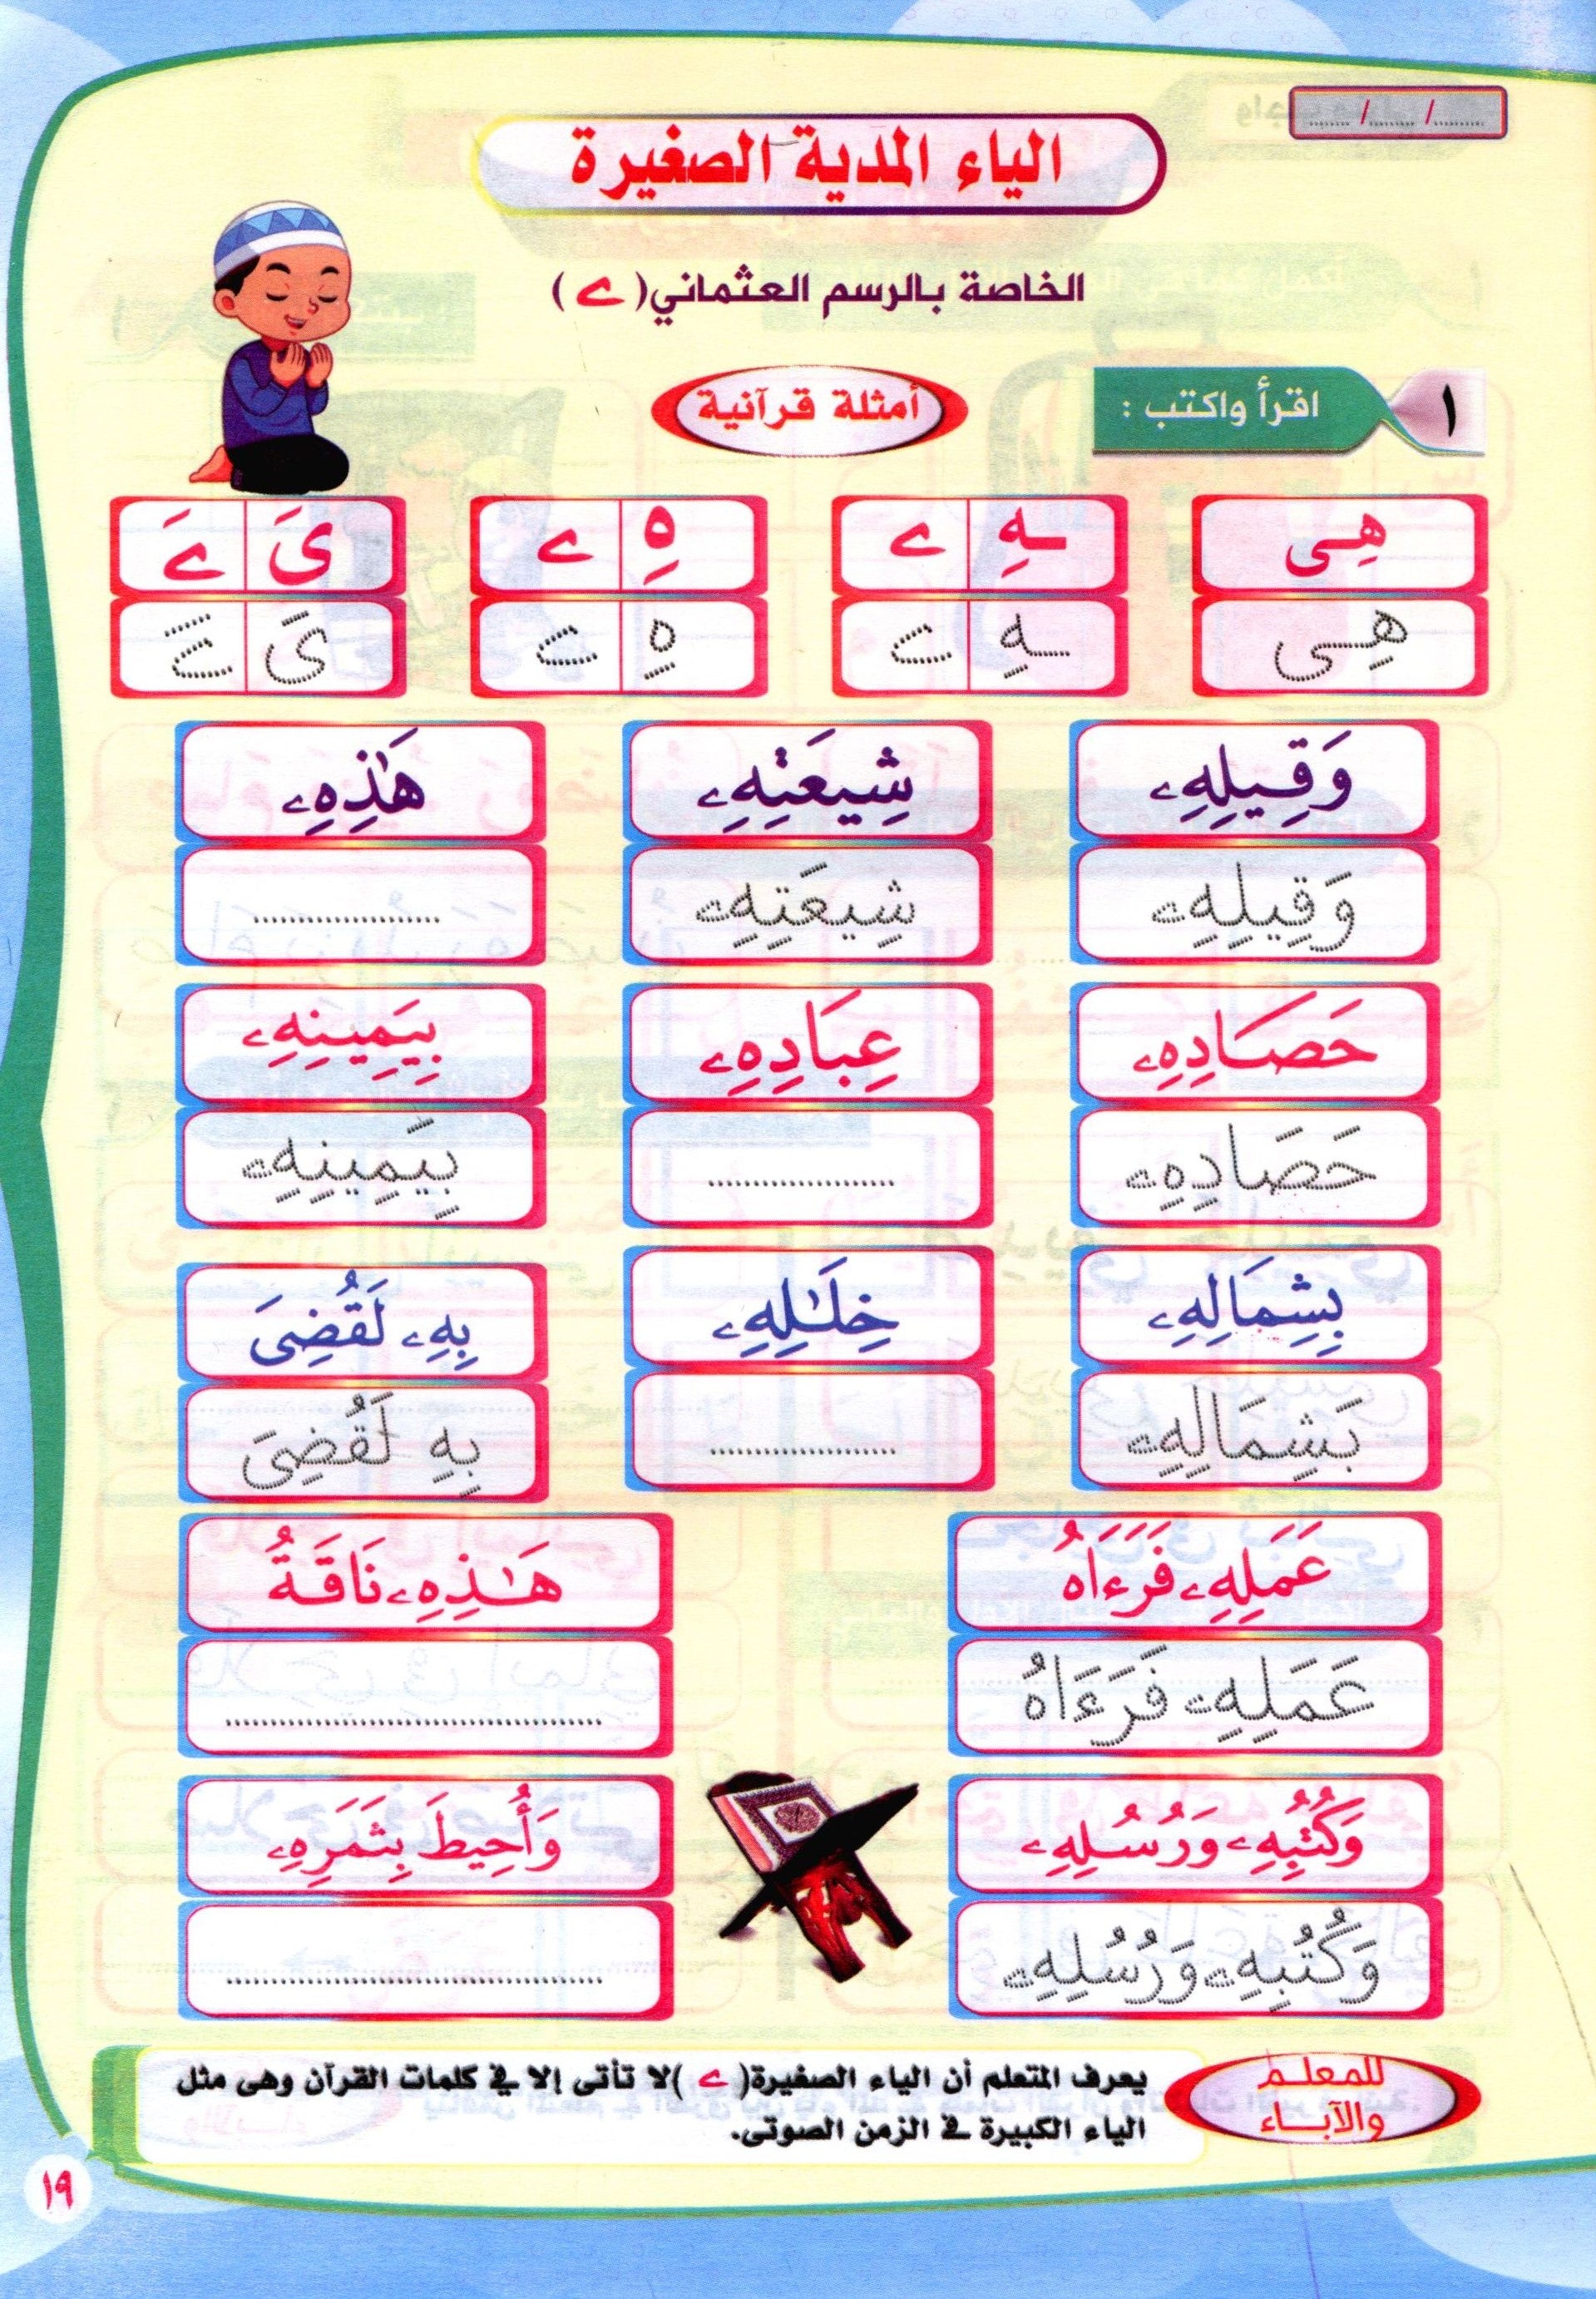 ..... / ..... / .....
الياء المدية الصغيرة
الخاصة بالرسم العثماني (ے)
١ اقرأ واكتب :
أمثلة قرآنية
هِى هِ ے هِ ے ىَ ےَ
هِى هِ ے هِ ے ىَ ےَ
وَقِيلِهِۦ شِيعَتِهِۦ هَٰذِهِۦ
وَقِيلِهِۦ شِيعَتِهِۦ ....................
حَصَادِهِۦ عِبَادِهِۦ بِيَمِينِهِۦ
حَصَادِهِۦ .................... بِيَمِينِهِۦ
بِشِمَالِهِۦ خِلَٰلِهِۦ بِهِۦ لَقُضِىَ
بَشِمَالِهِۦ .................... بِهِ لَقُضِىَ
عَمَلِهِۦ فَرَءَاهُ هَٰذِهِۦ نَاقَةُ
عَمَلِهِۦ فَرَءَاهُ ....................
وَكُتُبِهِۦ وَرُسُلِهِۦ وَأُحِيطَ بِثَمَرِهِۦ
وَكُتُبِهِۦ وَرُسُلِهِۦ ....................
للمعلم
والآباء
يعرف المتعلم أن الياء الصغيرة( ے )لا تأتى إلا في كلمات القرآن وهى مثل
الياء الكبيرة في الزمن الصوتى.
١٩